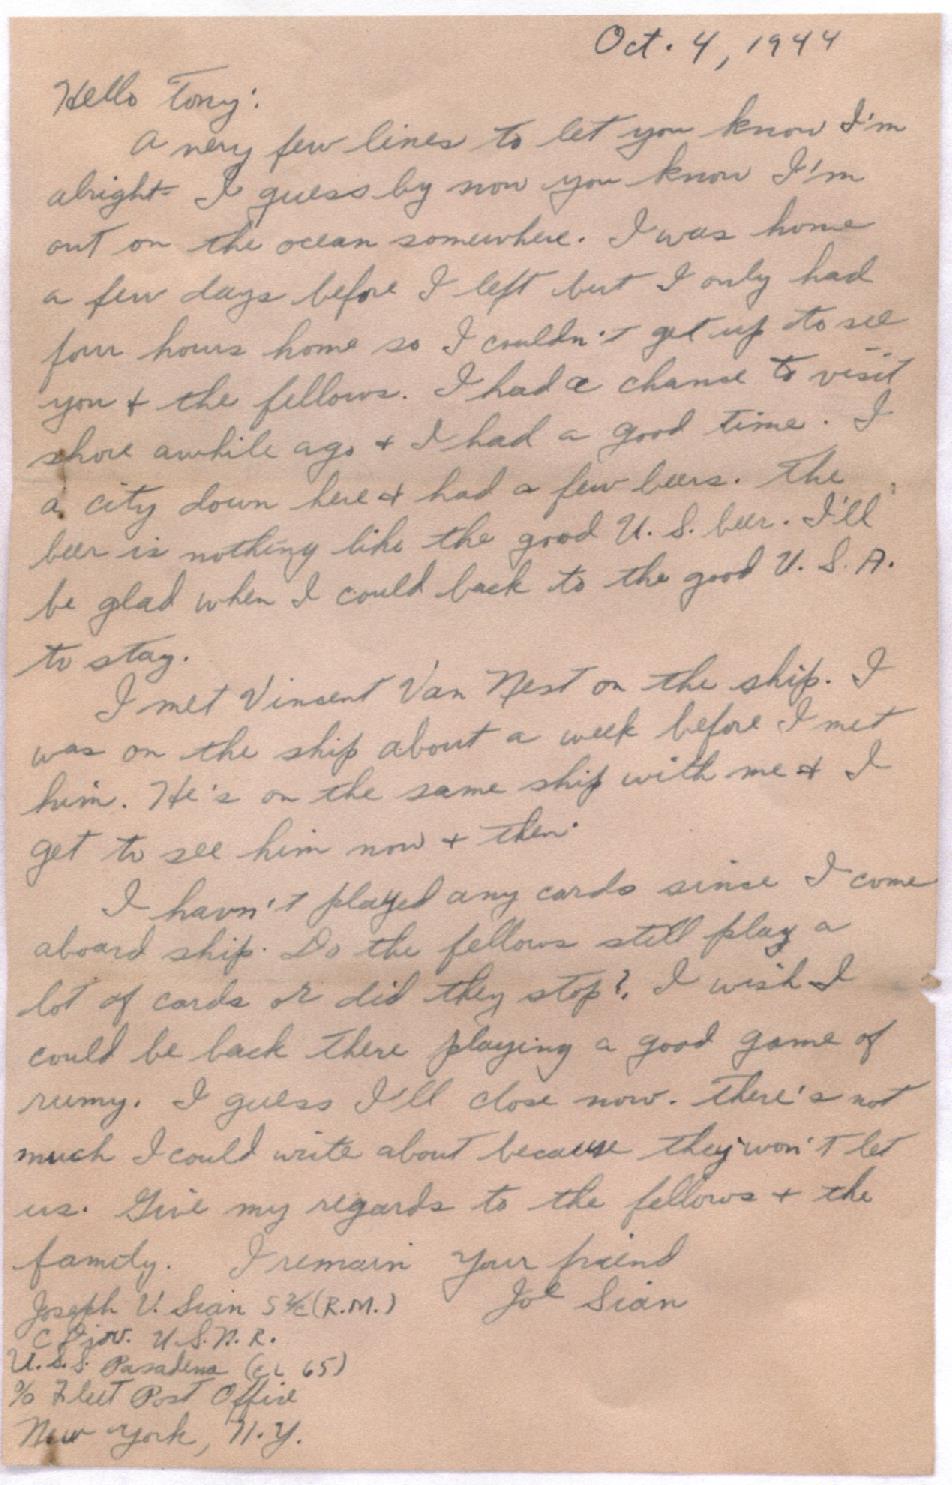 Oct. 4, 1944
Hello Tony:
A very few lines to let you know I'm
alright I guess by now you know I'm
out on the ocean somewhere. I was home
a few days before I left but I only had
four hours home so I couldn't get up to see
you + the fellows. I had a chanse to visit
shore awhile ago + I had a good time. I
a city down here + had a few beers. The
beer is nothing like the good U.S. beer. I'll
be glad when I could back to the good U.S.A.
to stay.
I met Vincent Van Nest on the ship. I
was on the ship about a week before I met
him. He's on the same ship with me + I
get to see him now + then.
I havn't played any cards since I come
aboard ship. Do the fellows still play a
lot of cards or did they stop?. I wish I
could be back there playing a good game of
rumy. I guess I'll close now. There's not
much I could write about because they won't let
us. Give my regards to the fellows + the
family. I remain your friend
Joe Sian
Joseph V. Sian S 2/c (R.M.)
C U.S.N.R.
U.S.S. Pasadena (CL 65)
c/o Fleet Post Office
New York, N.Y.